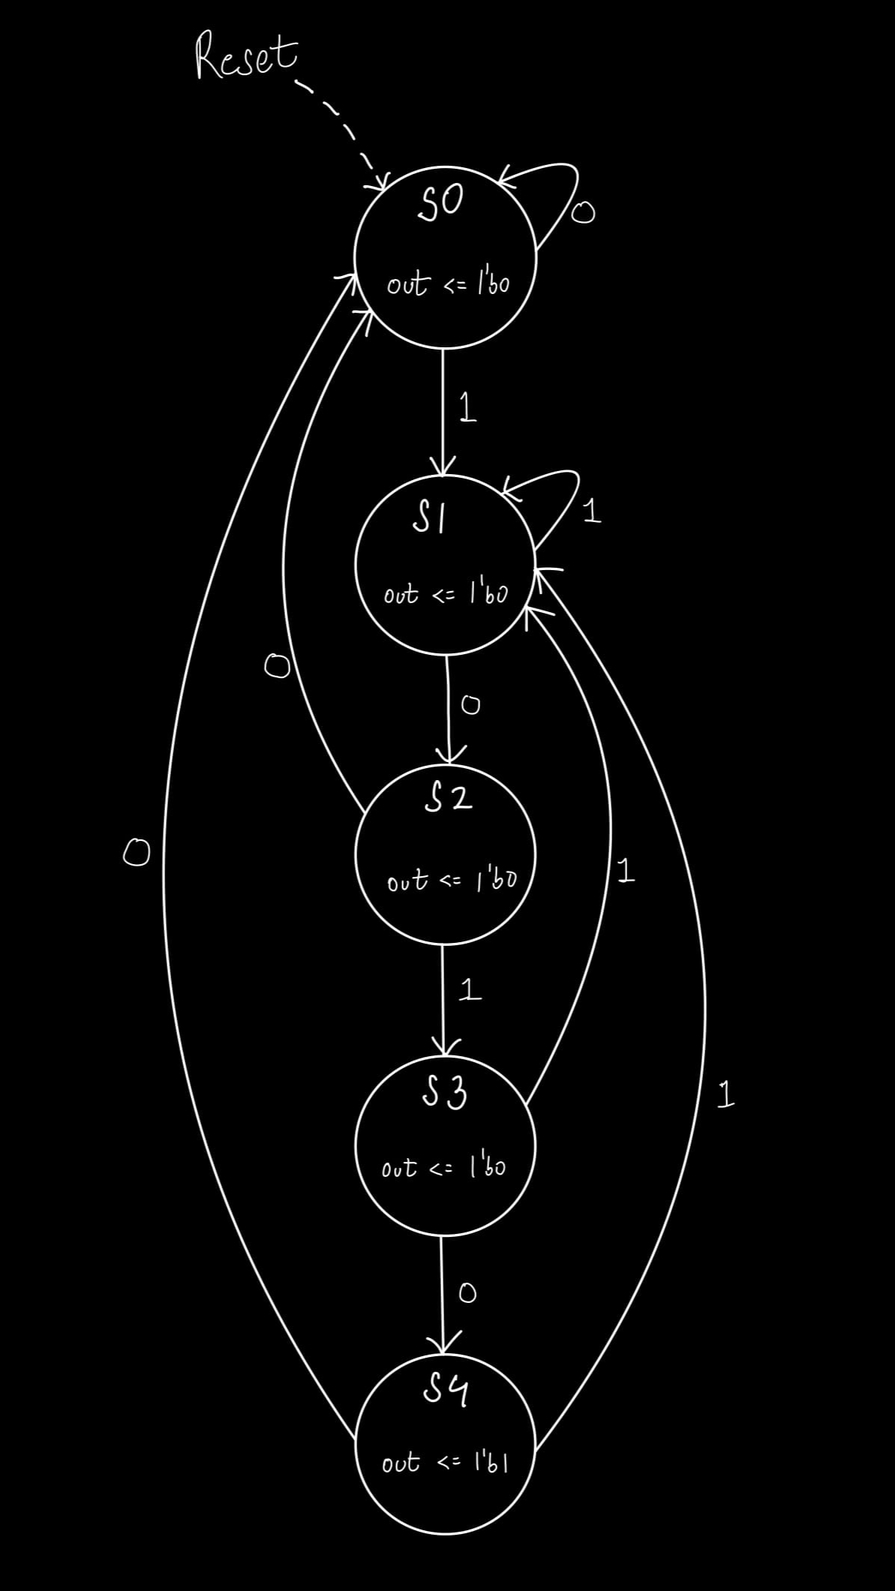 Reset
S0
0
out <= 1'b0
1
S1
1
out <= 1'b0
0
0
S2
0
out <= 1'b0
1
1
S3
1
out <= 1'b0
0
S4
out <= 1'b1